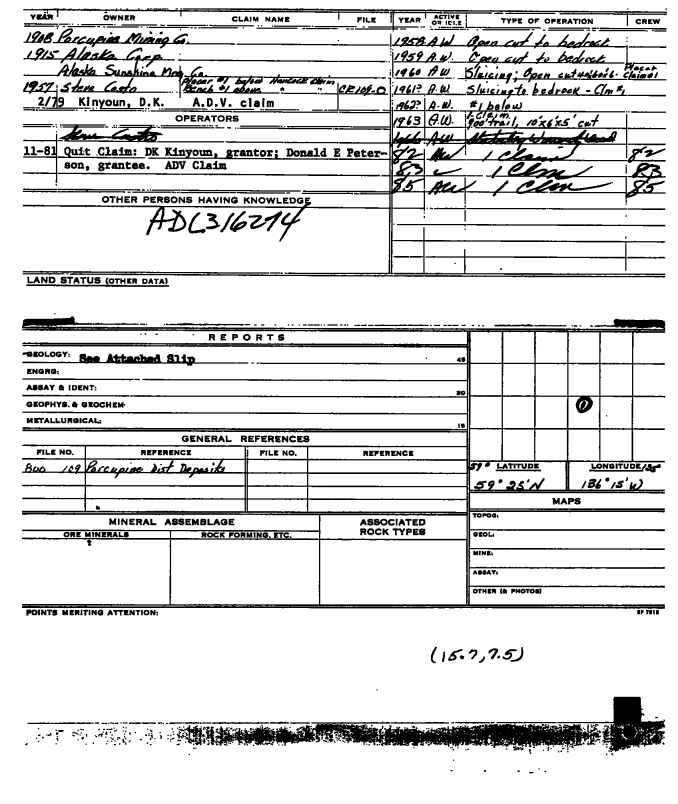 YEAR OWNER CLAIM NAME FILE YEAR ACTIVE OR IDLE TYPE OF OPERATION CREW
1908 Porcupine Mining Co.
1915 Alaska Corp
Alaska Sunshine Mng Co.
1957 Steve Casto Placer #1 below Hancock Claim
Bench #1 above " "
2/79 Kinyoun, D.K. A.D.V. claim
OPERATORS
Steve Casto
11-81 Quit Claim: DK Kinyoun, grantor; Donald E Peter-
son, grantee. ADV Claim
OTHER PERSONS HAVING KNOWLEDGE
ADL316274
1958 A.W. Open cut to bedrock
1959 A.W. Open cut to bedrock
1960 A.W. Sluicing; Open cut Placer Claim #1
1961? A.W. Sluicing to bedrock - Clm #1
1962? A.W. #1 below
1963 A.W. 1 Claim,
900' trail, 10'x6'x5' cut
82 AW 1 Claim 82
83 1 Clm 83
85 AW 1 Clm 85
LAND STATUS (OTHER DATA)
REPORTS
GEOLOGY: See Attached Slip 45
ENGRG:
ASSAY & IDENT: 30
GEOPHYS. & GEOCHEM:
METALLURGICAL: 15
GENERAL REFERENCES
FILE NO. REFERENCE FILE NO. REFERENCE
109 Porcupine Dist Deposits
59° LATITUDE LONGITUDE
59° 25' N 136° 15' W
MAPS
TOPOG:
GEOL:
MINE:
ASSAY:
OTHER (& PHOTOS)
MINERAL ASSEMBLAGE ASSOCIATED ROCK TYPES
ORE MINERALS ROCK FORMING, ETC.
POINTS MERITING ATTENTION:
(15.7, 7.5)